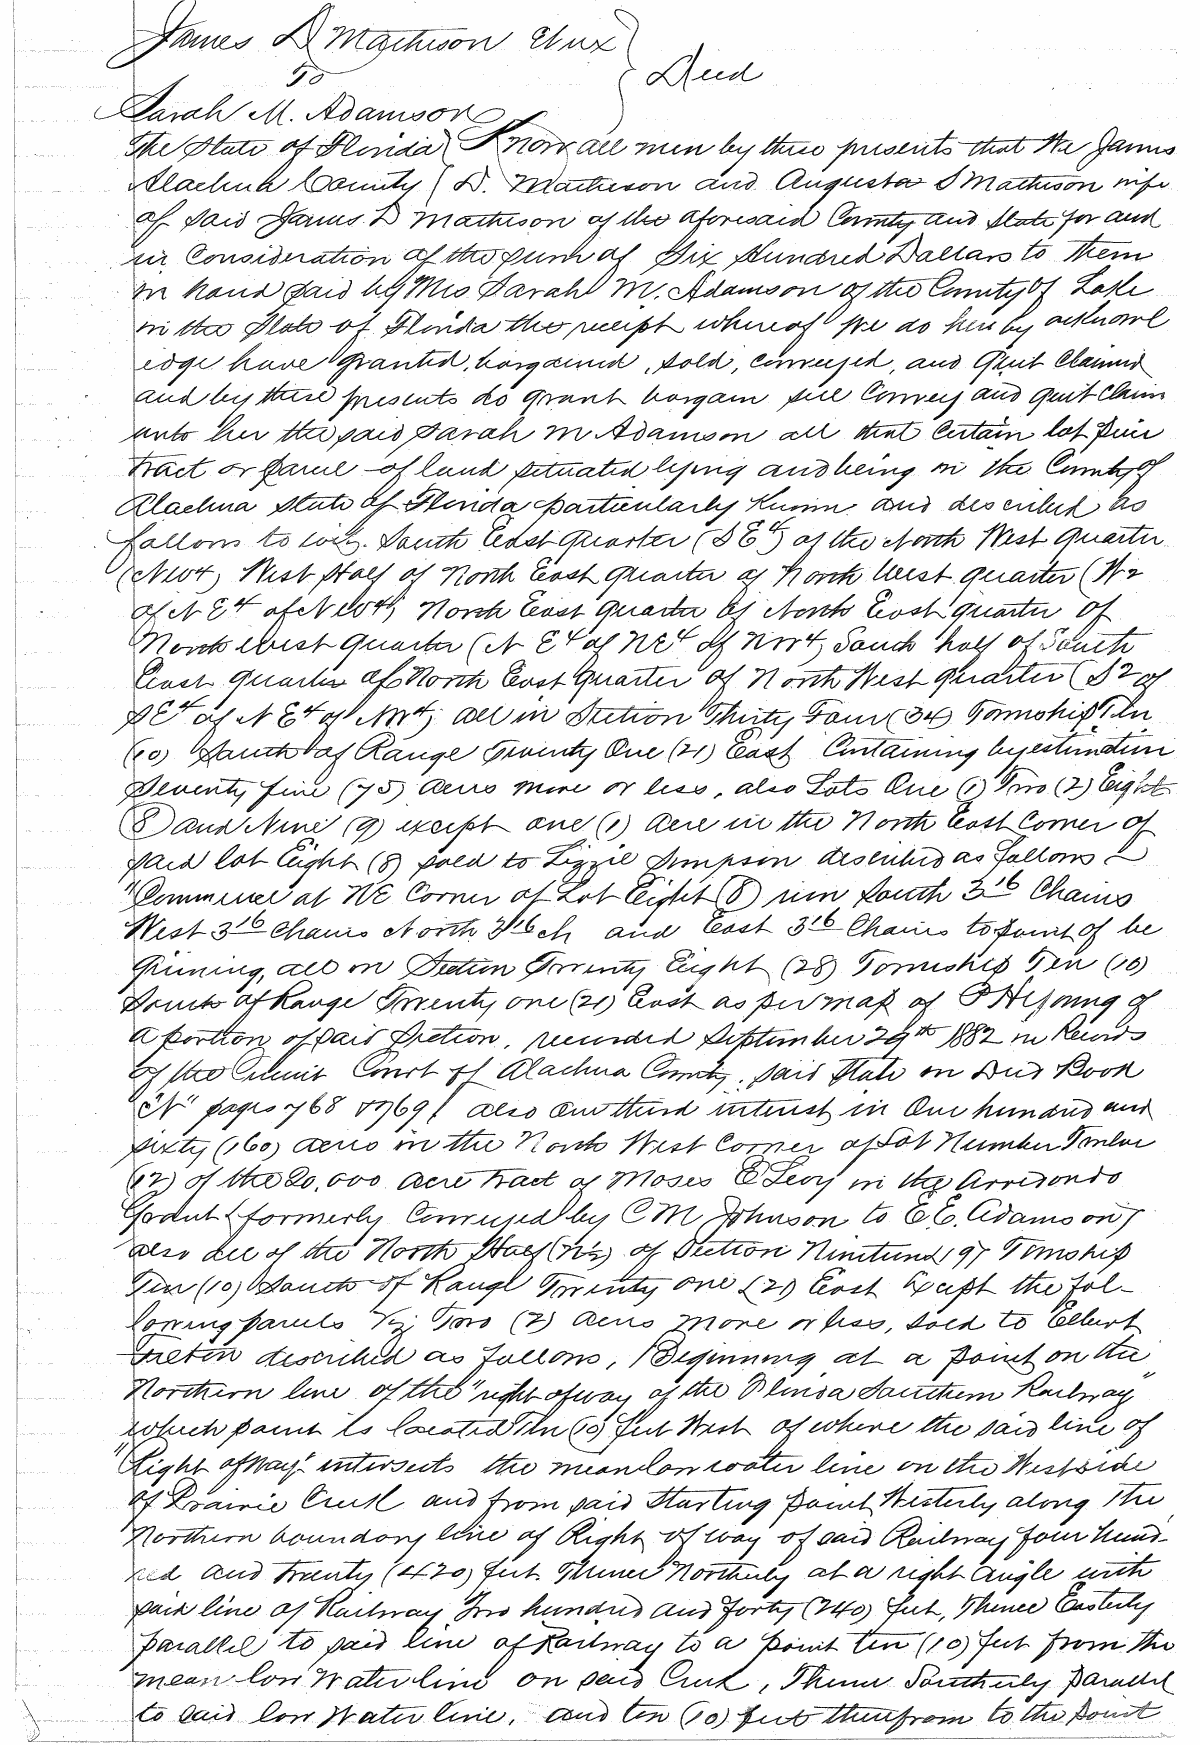 James D Matheson et ux
to
Deed
Sarah M. Adamson
The State of Florida Know all men by these presents that We James
Alachua County D. Matheson and Augusta S Matheson wife
of said James D Matheson of the aforesaid County and State for and
in Consideration of the sum of Six Hundred Dollars to them
in hand paid by Mrs Sarah M. Adamson of the County of Lake
in the State of Florida the receipt whereof We do hereby acknowl
edge have granted, bargained, sold, conveyed, and Quit Claimed
and by these presents do grant bargain sell Convey and quit claim
unto her the said Sarah M Adamson all that Certain lot piece
tract or parcel of land situated lying and being in the County of
Alachua State of Florida particularly Known and described as
follows to wit. South East quarter (S E4) of the North West quarter
(NW4) West Half of North East quarter of North West quarter (W2
of N E4 of NW4) North East quarter of North East quarter of
North West quarter (N E4 of NE4 of NW4) South half of South
East quarter of North East Quarter of North West quarter (S2 of
SE4 of N E4 of NW4) all in Section Thirty Four (34) Township Ten
(10) South of Range Twenty One (21) East Containing by estimation
Seventy five (75) acres more or less, also Lots One (1) Two (2) Eight
(8) and Nine (9) except one (1) Acre in the North East Corner of
said lot Eight (8) sold to Lizzie Simpson described as follows
"Commence at NE Corner of Lot Eight (8) run South 3 16 Chains
West 3 16 Chains North 3 16 ch and East 3 16 Chains to point of be
ginning, all in Section Twenty Eight (28) Township Ten (10)
South of Range Twenty one (21) East as per map of P H Young of
a portion of said Section, recorded September 29th 1882 in Records
of the Circuit Court of Alachua County, said State in Deed Book
"N" pages 768 & 769, also One third interest in One hundred and
sixty (160) acres in the North West Corner of Lot Number Twelve
(12) of the 20,000 acre tract of Moses E Levy in the Arredondo
Grant (formerly Conveyed by C M Johnson to E.E. Adamson)
also all of the North Half (N½) of Section Nineteen (19) Township
Ten (10) South of Range Twenty one (21) East Except the fol-
lowing parcels Viz; Two (2) Acres more or less, sold to Elbert
described as follows, Beginning at a point on the
Northern line of the "right of way of the Florida Southern Railway"
which point is located Ten (10) feet West of where the said line of
"Right of Way" intersects the mean low water line on the West side
of Prairie Creek and from said Starting point Westerly along the
Northern boundary line of Right of way of said Railway four hund-
red and twenty (420) feet Thence Northerly at a right angle with
said line of Railway Two hundred and forty (240) feet, Thence Easterly
parallel to said line of Railway to a point ten (10) feet from the
mean low Water line on said Creek, Thence Southerly parallel
to said low Water line, and ten (10) feet therefrom to the point